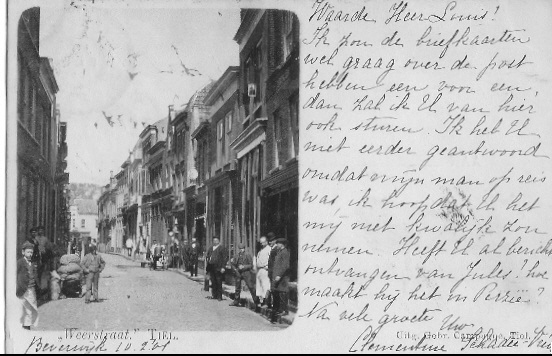 Waarde Heer Louis!
Ik zou de briefkaarten
wel graag over de post
hebben een voor een,
dan zal ik U van hier
ook sturen. Ik heb U
niet eerder geantwoord
omdat mijn man op reis
was ik hoop dat U het
mij niet kwalijk zou
nemen. Heeft U al bericht
ontvangen van Jules? hoe
maakt hij het in Perzië?
Na vele groete Uw
Clementine
„Weerstraat.” TIEL.
Uitg. Gebr. Campagne, Tiel.
Beverwijk 10.2.01